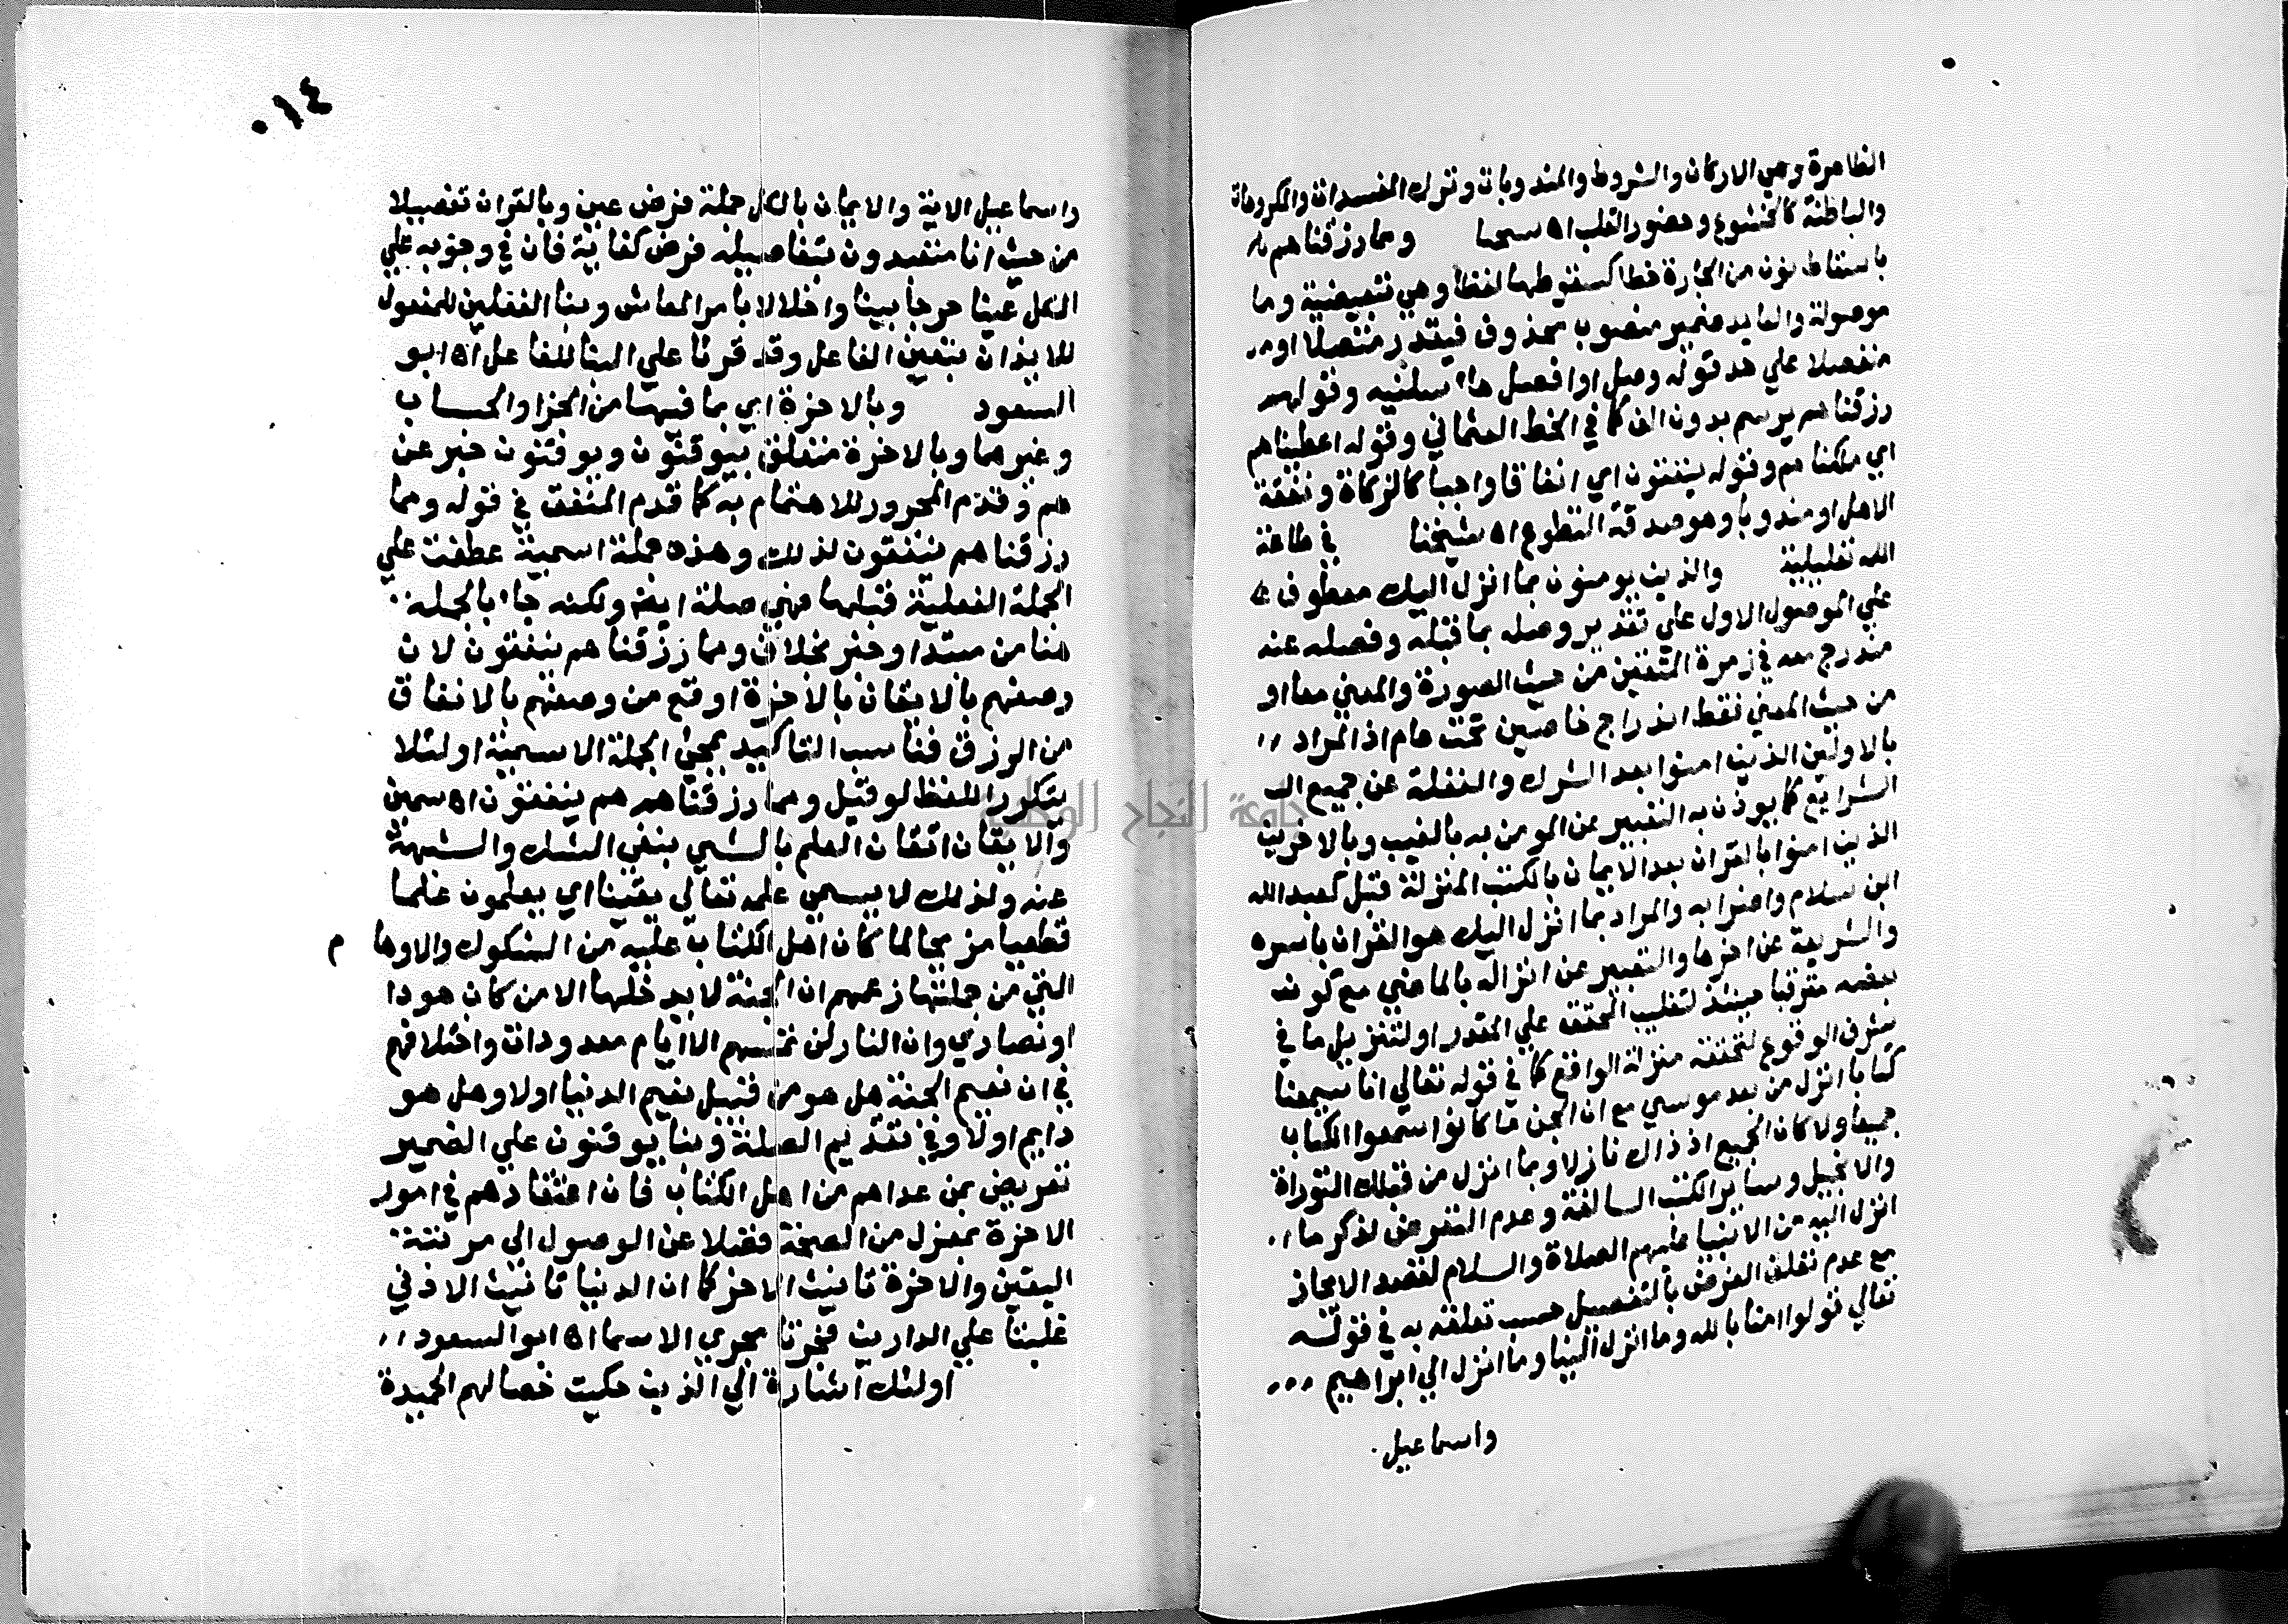 الظاهرة وهي الاركان والشروط والمندوبات وترك المفسدات والمكروهات
والباطنة كالخشوع وحضور القلب اه سمين ومما رزقناهم
باسقاط نون من الجارة خطا كسقوطها لفظا وهي تبعيضية وما
موصولة والعايد ضمير منصوب محذوف فيقدر متصلا او
منفصلا علي حد قوله وصل اوافصل هاء سلنيه وقوله
رزقناهم يرسم بدون الف كما في الخط العثماني وقوله اعطيناهم
اي ملكناهم وقوله ينفقون اي انفاقا واجبا كالزكاة ونفقة
الاهل او مندوبا وهو صدقة التطوع اه شيخنا في طاعة
الله تعليلية والذين يومنون بما انزل اليك معطوف
علي الموصول الاول علي تقدير وصله بما قبله وفصله عنه
مندرج معه في زمرة المتقين من حيث الصورة والمعني معا او
من حيث المعني فقط اندراج خاصين تحت عام اذ المراد
بالاولين الذين امنوا بعد الشرك والغفلة عن جميع
الشرايع كما يوذن به التعبير عن المومن به بالغيب وبالاخرين
الذين امنوا بالقران بعد الايمان بالكتب المنزلة قبل كعبد الله
ابن سلام واضرابه والمراد بما انزل اليك هو القران باسره
والشريعة عن اخرها والتعبير عن انزاله بالماضي مع كون
بعضه مترقبا حينئذ لتغليب المحقق علي المقدر او لتنزيل ما في
شرف الوقوع لتحققه منزلة الواقع كما في قوله تعالي انا سمعنا
كتابا انزل من بعد موسي مع ان الجن ما كانوا سمعوا الكتاب
جميعا ولا كان الجميع اذ ذاك نازلا وبما انزل من قبلك التوراة
والانجيل وساير الكتب السالفة وعدم التعرض لذكر ما
انزل اليه من الانبيا عليهم الصلاة والسلام لقصد الايجاز
مع عدم تعلق الغرض بالتفصيل حسب تعلقه به في قوله
تعالي قولوا امنا بالله وما انزل الينا وما انزل الي ابراهيم
واسماعيل
٠١٤
واسماعيل الاية والايمان بالكل جملة فرض عين وبالقران تفصيلا
من حيث انا متعبدون بتفاصيله فرض كفاية فان في وجوبه علي
الكل عينا حرجا بينا واخلالا بامر المعاش وبنا الفعلين للمفعول
للايذان بتعين الفاعل وقد قرئا علي البنا للفاعل اه ابو
السعود وبالاخرة اي بما فيها من الجزا والحساب
وغيرهما وبالاخرة متعلق بيوقنون ويوقنون خبر عن
هم وقدم المجرور للاهتمام به كما قدم المنفق في قوله ومما
رزقناهم ينفقون لذلك وهذه جملة اسمية عطفت علي
الجملة الفعلية قبلها فهي صلة ايضا ولكنه جاء بالجملة
هنا من مبتدا وخبر بخلاف ومما رزقناهم ينفقون لان
وصفهم بالايقان بالاخرة اوقع من وصفهم بالانفاق
من الرزق فناسب التاكيد بمجئ الجملة الاسمية اولئلا
يتكرر اللفظ لو قيل ومما رزقناهم هم ينفقون اه سمين
والايقان اتقان العلم بالشي بنفي الشك والشبهة
عنه ولذلك لا يسمي علمه تعالي يقينا اي يعلمون علما
قطعيا مزيحا لما كان اهل الكتاب عليه من الشكوك والاوهام
التي من جملتها زعمهم ان الجنة لا يدخلها الا من كان هودا
او نصاري وان النار لن تمسهم الا ايام معدودات واختلافهم
في ان نعيم الجنة هل هو من قبيل نعيم الدنيا اولا وهل هو
دايم اولا وفي تقديم الصلة وبنا يوقنون علي الضمير
تعريض بمن عداهم من اهل الكتاب فان اعتقادهم في امور
الاخرة بمعزل من الصحة فضلا عن الوصول الي مرتبة
اليقين والاخرة تانيث الاخر كما ان الدنيا تانيث الادني
غلبتا علي الدارين فجرتا مجري الاسما اه ابو السعود
اولئك اشارة الي الذين حكيت خصالهم الحميدة
جامعة النجاح الوطنية